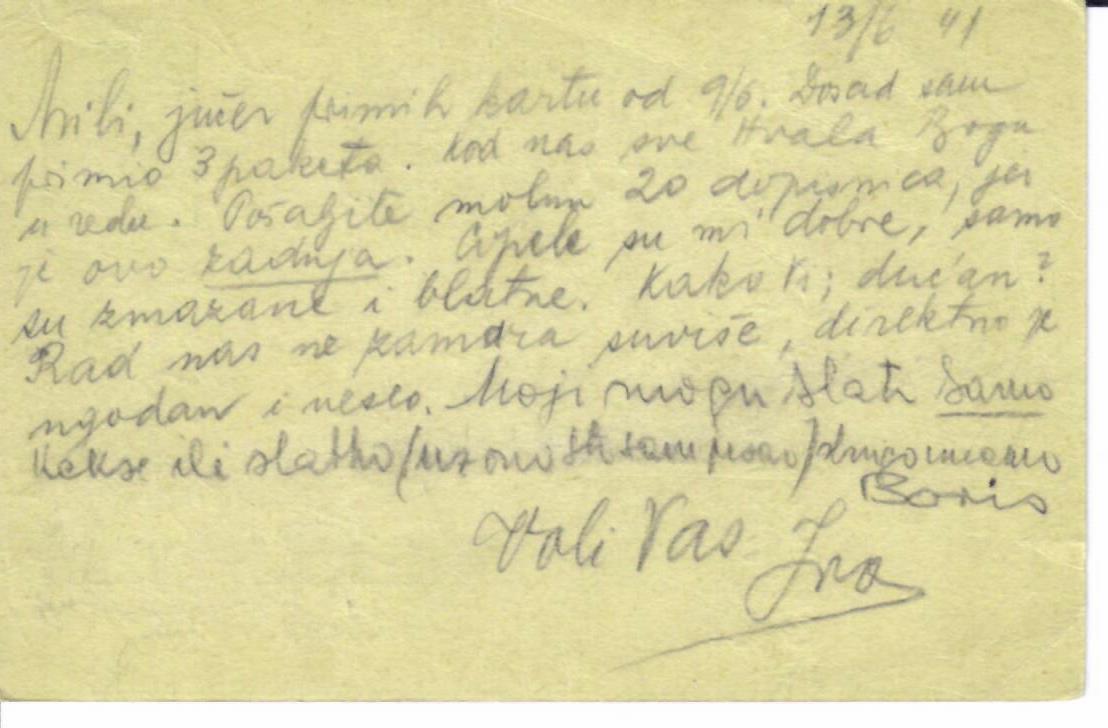 13/6 41
Mili, jučer primih kartu od 9/6. Dosad sam
primio 3 paketa. Kod nas sve Hvala Bogu
u redu. Pošaljite molim 20 dopisnica, jer
je ovo zadnja. Cipele su mi dobre, samo
su zmazane i blatne. Kako Vi; dućan?
Rad nas ne zamara suviše, direktno je
ugodan i veseo. Moji mogu slati samo
Kekse ili slatko (uz ono što sam pisao)
Boris
Voli Vas Ivo